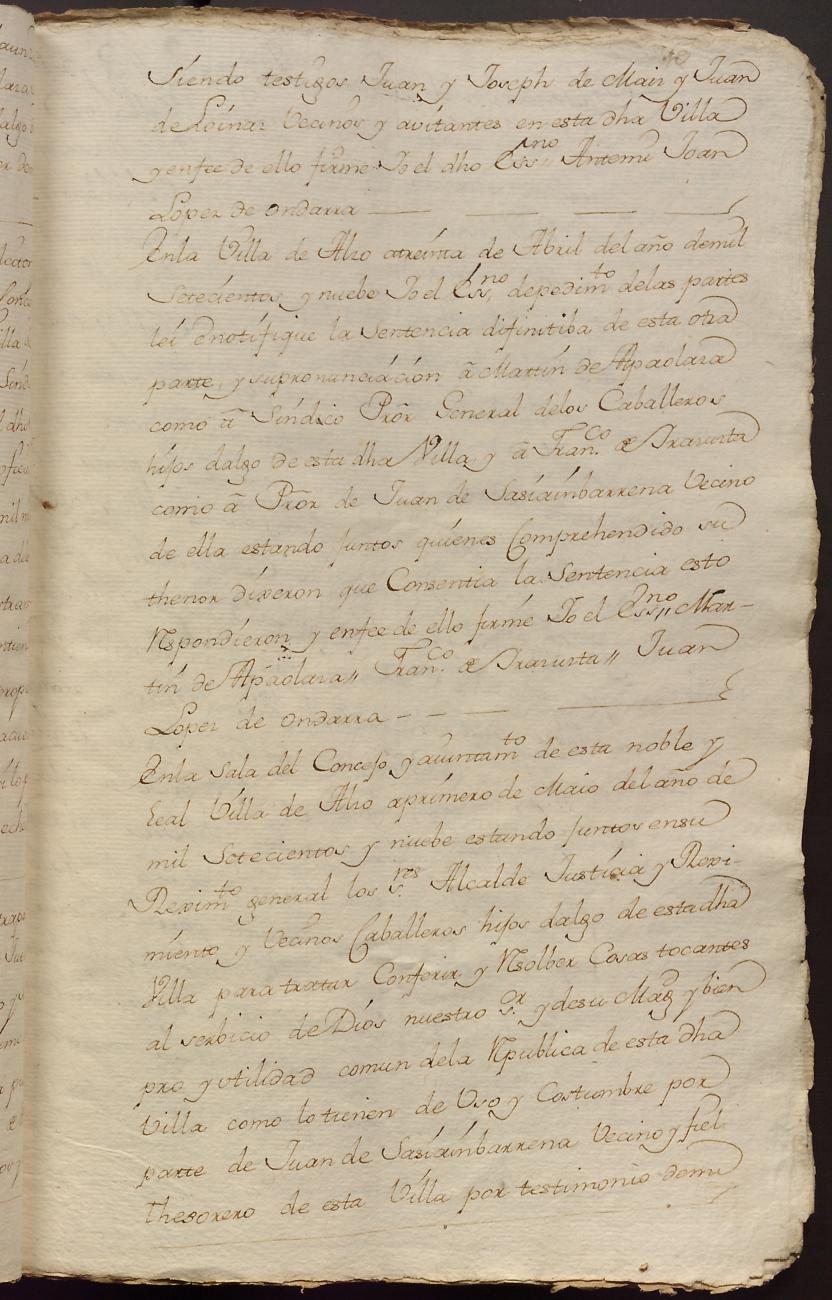 Siendo testigos Juan y Joseph de Maiz y Juan
de Loinaz Vecinos y avitantes en esta dha Villa
y enfee de ello firme Yo el dho Essno Antemi Joan
Lopez de Ondarra
Enla Villa de Alzo atreinta de Abril del año demil
Setecientos y nuebe Yo el Essno, depedimto delas partes
lei Enotifique la Sentencia difinitiba de esta otra
parte, y supronunciacion â Martin de Apaolaza
como â Sindico Pror General delos Caballeros
hijos dalgo de esta dha Villa, y â Franco de Irazusta
como â Pror de Juan de Sasiainbarrena Vecino
de ella estando juntos quienes Comprehendido su
thenor dixeron que Consentia la Sentencia esto
Respondieron, y enfee de ello firmé Yo el Essno,, Mar-
tin de Apaolaza,, Franco de Irazusta,, Juan
Lopez de Ondarra
Enla Sala del Concejo, y aiuntamto de esta noble y
Leal Villa de Alzo aprimero de Maio del año de
mil Setecientos y nuebe estando juntos ensu
Reximto general los sres Alcalde Justicia y Rexi-
miento y Vecinos Caballeros hijos dalgo de esta dha
Villa para tratar Conferir y Resolber Cosas tocantes
al serbicio de Dios nuestro Sr y desu Magd y bien
pro y utilidad comun dela Republica de esta dha
Villa como lo tienen de Uso y Costumbre por
parte de Juan de Sasiainbarrena Vecino y fiel
thesorero de esta Villa por testimonio demi